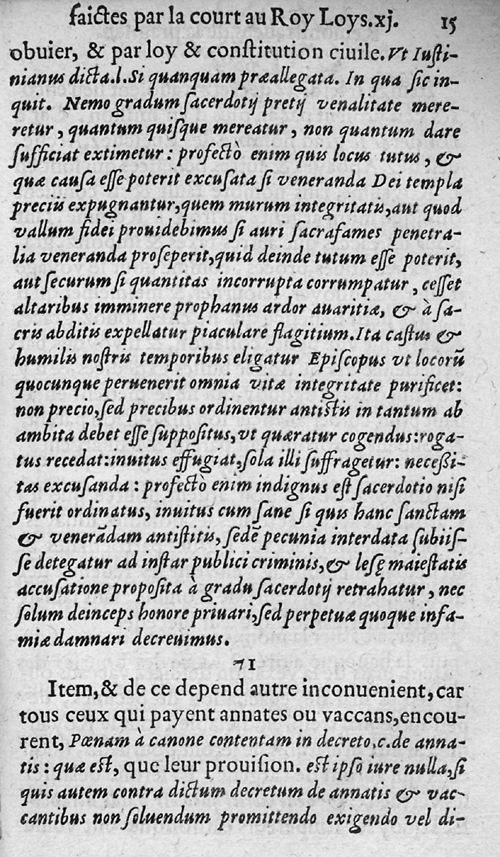 faictes par la court au Roy Loys.xj. 15
obuier, & par loy & constitution ciuile. Vt Iusti-
nianus dicta.l.Si quanquam præallegata. In qua sic in-
quit. Nemo gradum sacerdotij pretij venalitate mere-
retur, quantum quisque mereatur, non quantum dare
sufficiat extimetur: profectò enim quis locus tutus, &
quæ causa esse poterit excusata si veneranda Dei templa
preciis expugnantur, quem murum integritatis, aut quod
vallum fidei prouidebimus si auri sacrafames penetra-
lia veneranda proserperit, quid deinde tutum esse poterit,
aut securum si quantitas incorrupta corrumpatur, cesset
altaribus imminere prophanus ardor auaritiæ, & à sa-
cris abditis expellatur piaculare flagitium. Ita castus &
humilis nostris temporibus eligatur Episcopus vt locorũ
quocunque peruenerit omnia vitæ integritate purificet:
non precio, sed precibus ordinentur antistis in tantum ab
ambita debet esse suppositus, vt quæratur cogendus: roga-
tus recedat: inuitus effugiat, sola illi suffragetur: necessi-
tas excusanda: profectò enim indignus est sacerdotio nisi
fuerit ordinatus, inuitus cum sane si quis hanc sanctam
& venerãdam antistitis, sedẽ pecunia interdata subiis-
se detegatur ad instar publici criminis, & lesę maiestatis
accusatione proposita à gradu sacerdotij retrahatur, nec
solum deinceps honore priuari, sed perpetuæ quoque infa-
miæ damnari decreuimus.
71
Item, & de ce depend autre inconuenient, car
tous ceux qui payent annates ou vaccans, encou-
rent, Pœnam à canone contentam in decreto, c. de anna-
tis: quæ est, que leur prouision. est ipso iure nulla, si
quis autem contra dictum decretum de annatis & vac-
cantibus non soluendum promittendo exigendo vel di-